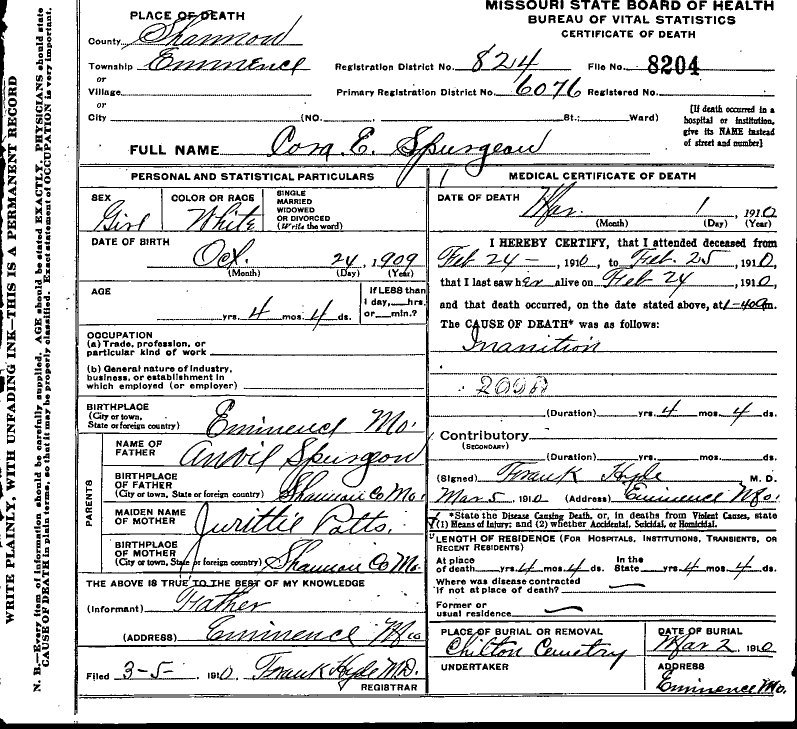 MISSOURI STATE BOARD OF HEALTH
BUREAU OF VITAL STATISTICS
CERTIFICATE OF DEATH
PLACE OF DEATH
County Shannon
Township Eminence
or
Village
or
City (NO. St.; Ward)
Registration District No. 824 File No. 8204
Primary Registration District No. 6076 Registered No.
[If death occurred in a
hospital or institution,
give its NAME instead
of street and number]
FULL NAME Cora E. Spurgeon
PERSONAL AND STATISTICAL PARTICULARS
SEX
Girl
COLOR OR RACE
White
SINGLE
MARRIED
WIDOWED
OR DIVORCED
(Write the word)
DATE OF BIRTH
Oct. 24, 1909
(Month) (Day) (Year)
AGE
yrs. 4 mos. 4 ds.
If LESS than
1 day, hrs.
or min.?
OCCUPATION
(a) Trade, profession, or
particular kind of work
(b) General nature of industry,
business, or establishment in
which employed (or employer)
BIRTHPLACE
(City or town,
State or foreign country) Eminence Mo.
PARENTS
NAME OF
FATHER Anvil Spurgeon
BIRTHPLACE
OF FATHER
(City or town, State or foreign country) Shannon Co Mo.
MAIDEN NAME
OF MOTHER Jurittie Potts.
BIRTHPLACE
OF MOTHER
(City or town, State or foreign country) Shannon Co Mo.
THE ABOVE IS TRUE TO THE BEST OF MY KNOWLEDGE
(Informant) Father
(ADDRESS) Eminence Mo
Filed 3-5, 1910, Frank Hyde M.D.
REGISTRAR
MEDICAL CERTIFICATE OF DEATH
DATE OF DEATH Mar. 1, 1910
(Month) (Day) (Year)
I HEREBY CERTIFY, that I attended deceased from
Feb 24-, 1910, to Feb. 25, 1910,
that I last saw her alive on Feb 24, 1910,
and that death occurred, on the date stated above, at 1-40 a m.
The CAUSE OF DEATH* was as follows:
Inanition
(Duration) yrs. 4 mos. 4 ds.
Contributory
(SECONDARY)
(Duration) yrs. mos. ds.
(Signed) Frank Hyde M. D.
Mar 5, 1910 (Address) Eminence Mo.
*State the Disease Causing Death, or, in deaths from Violent Causes, state
(1) Means of Injury; and (2) whether Accidental, Suicidal, or Homicidal.
LENGTH OF RESIDENCE (FOR HOSPITALS, INSTITUTIONS, TRANSIENTS, OR
RECENT RESIDENTS)
At place
of death yrs. 4 mos. 4 ds.
In the
State yrs. 4 mos. 4 ds.
Where was disease contracted
if not at place of death?
Former or
usual residence
PLACE OF BURIAL OR REMOVAL
Chilton Cemetry
DATE OF BURIAL
Mar 2, 1910
UNDERTAKER
ADDRESS
Eminence Mo.
WRITE PLAINLY, WITH UNFADING INK—THIS IS A PERMANENT RECORD
N. B.—Every item of information should be carefully supplied. AGE should be stated EXACTLY. PHYSICIANS should state
CAUSE OF DEATH in plain terms, so that it may be properly classified. Exact statement of OCCUPATION is very important.